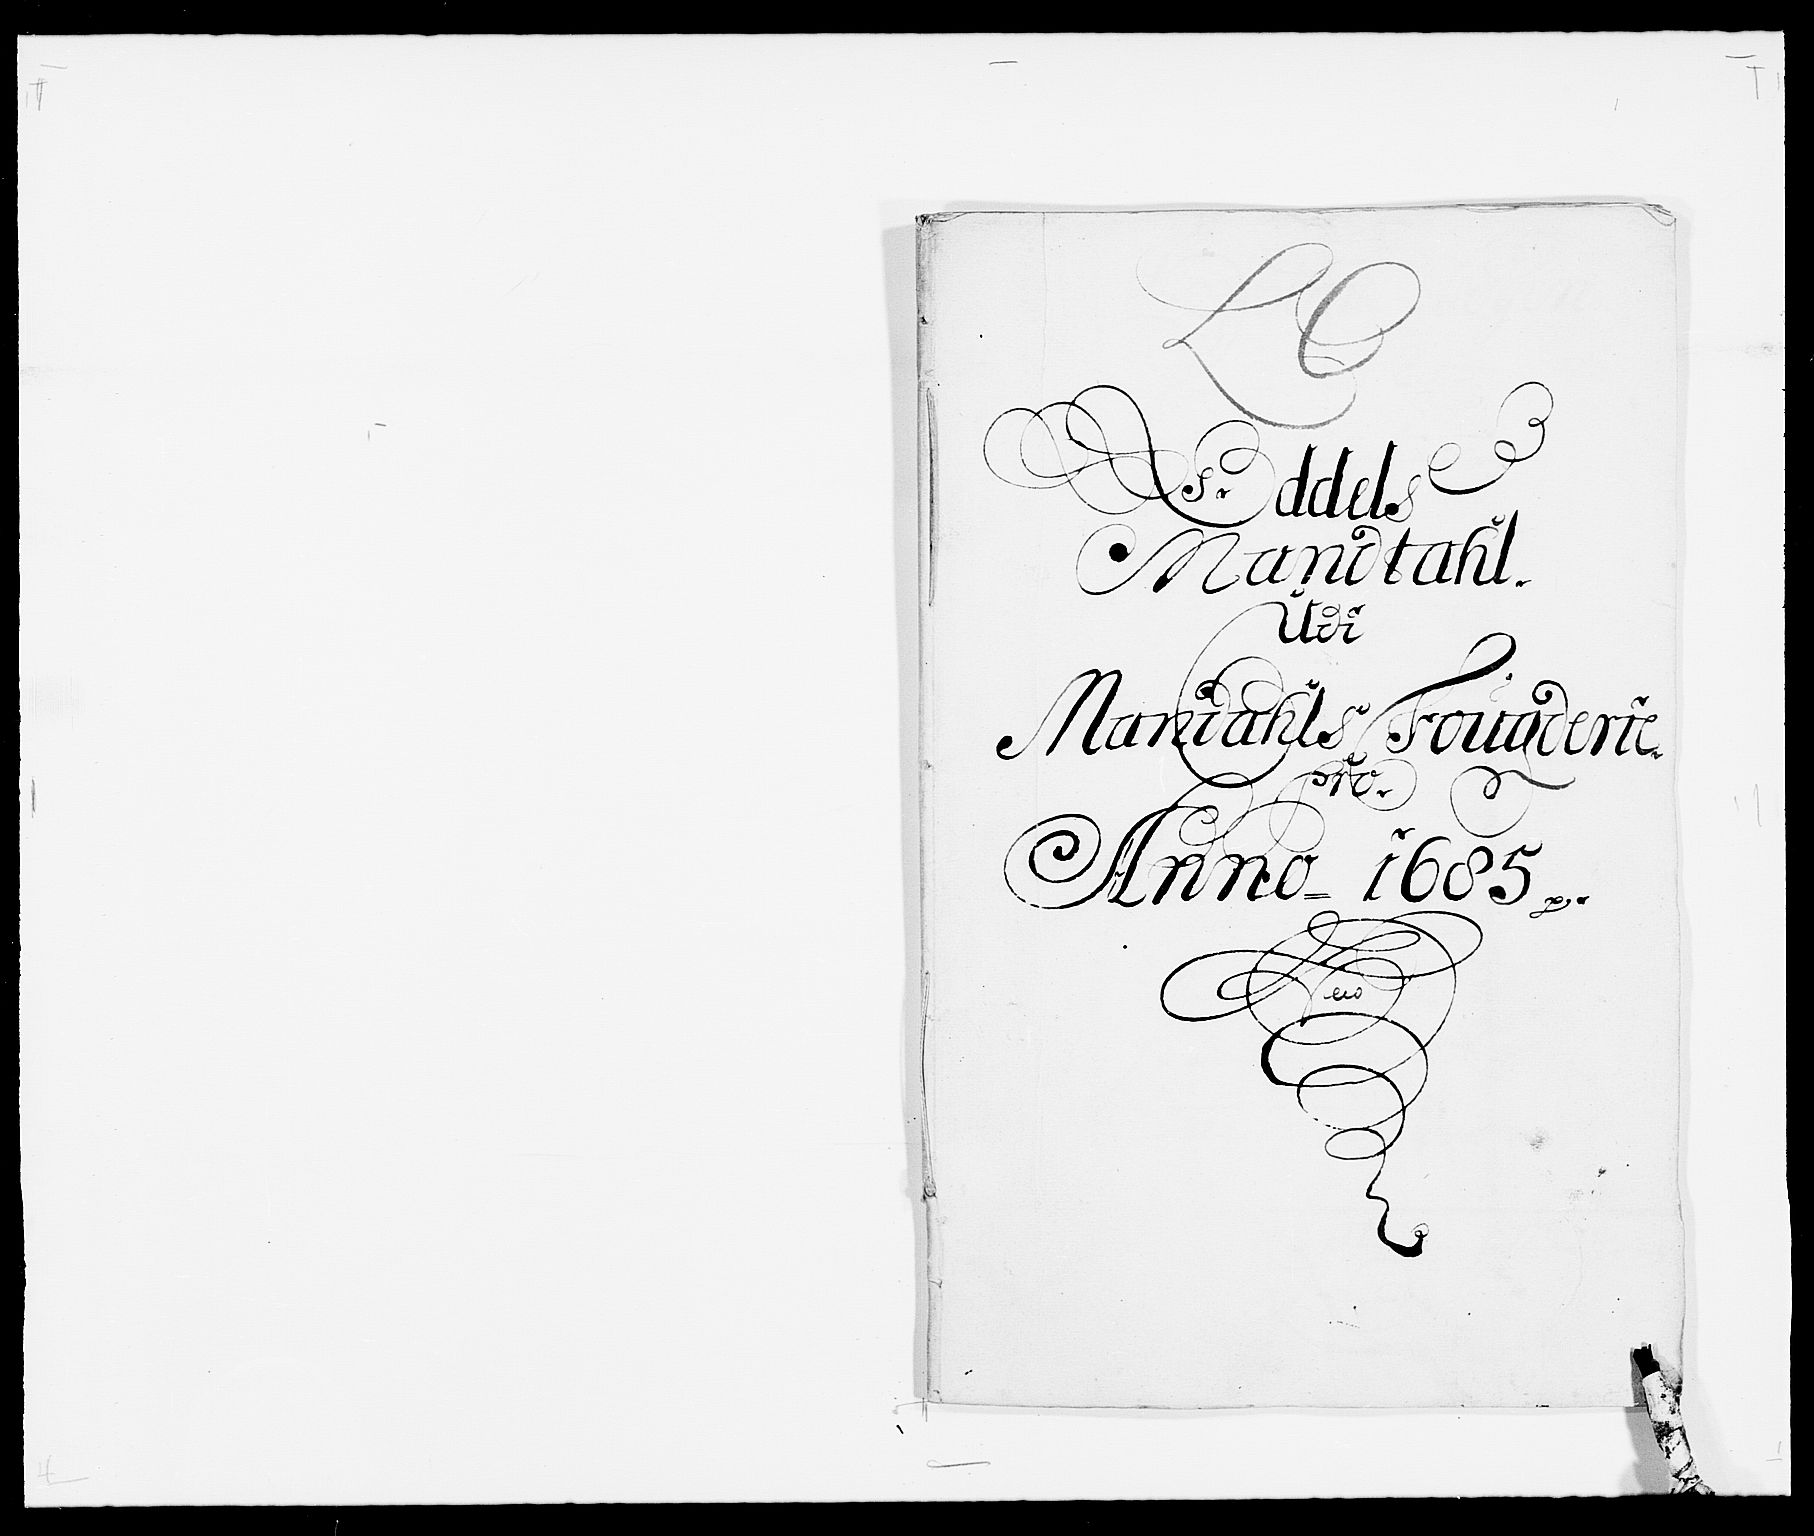 LC
Oddels
Mandtahl.
Udi
Mandahls Fougderie.
pro.
Anno 1685